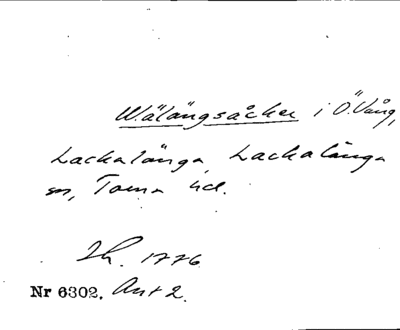 Wälängsåcker i Ö. Vång,
Lackalänga, Lackalänga
sn, Torna hd.
Lh. 1776
Nr 6302. Ant 2.